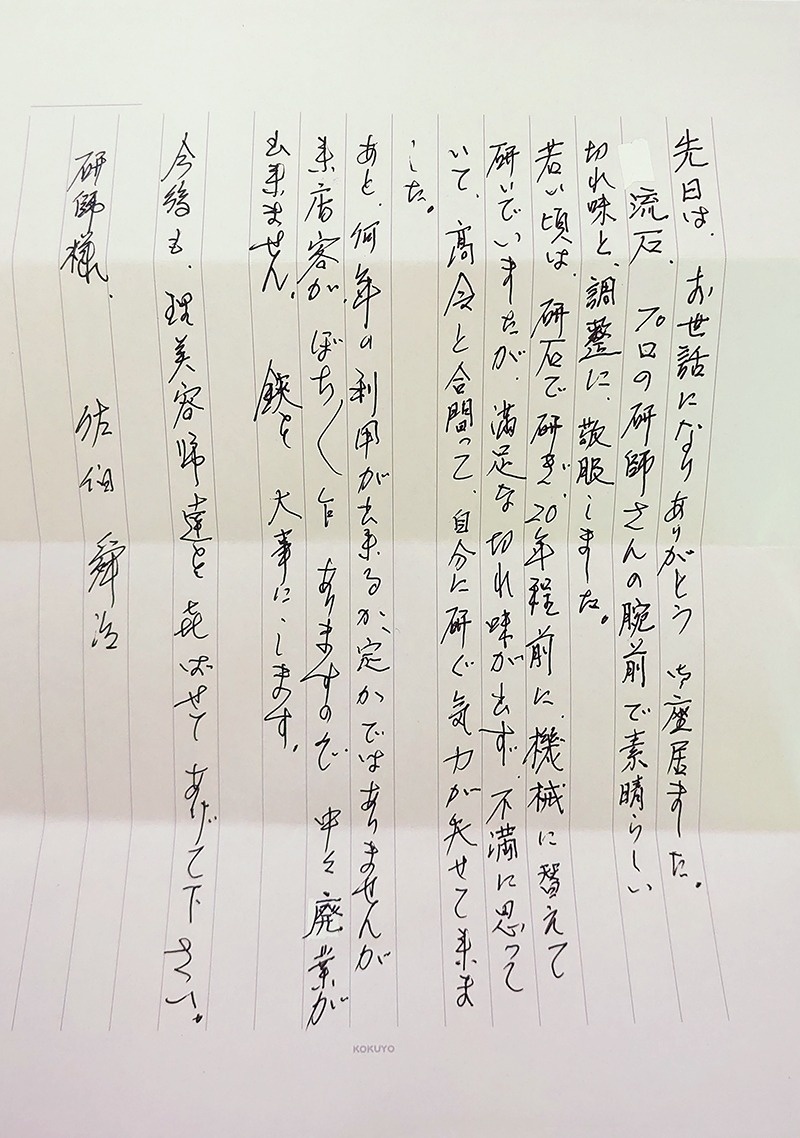 先日は、お世話になりありがとう御座居ました。
流石、プロの研師さんの腕前で素晴らしい
切れ味と、調整に、敬服しました。
若い頃は、研石で研ぎ、20年程前に、機械に替えて
研いでいましたが、満足な切れ味が出ず、不満に思って
いて、高令と合間って、自分に研ぐ気力が失せて来ま
した。
あと、何年の利用が出来るか、定かではありませんが
来店客が、ぼち〳〵乍ありますので、中々廃業が
出来ません。鋏を大事にします。
今後も、理美容師達を喜ばせてあげて下さい。
研師様、佐伯舜治
KOKUYO